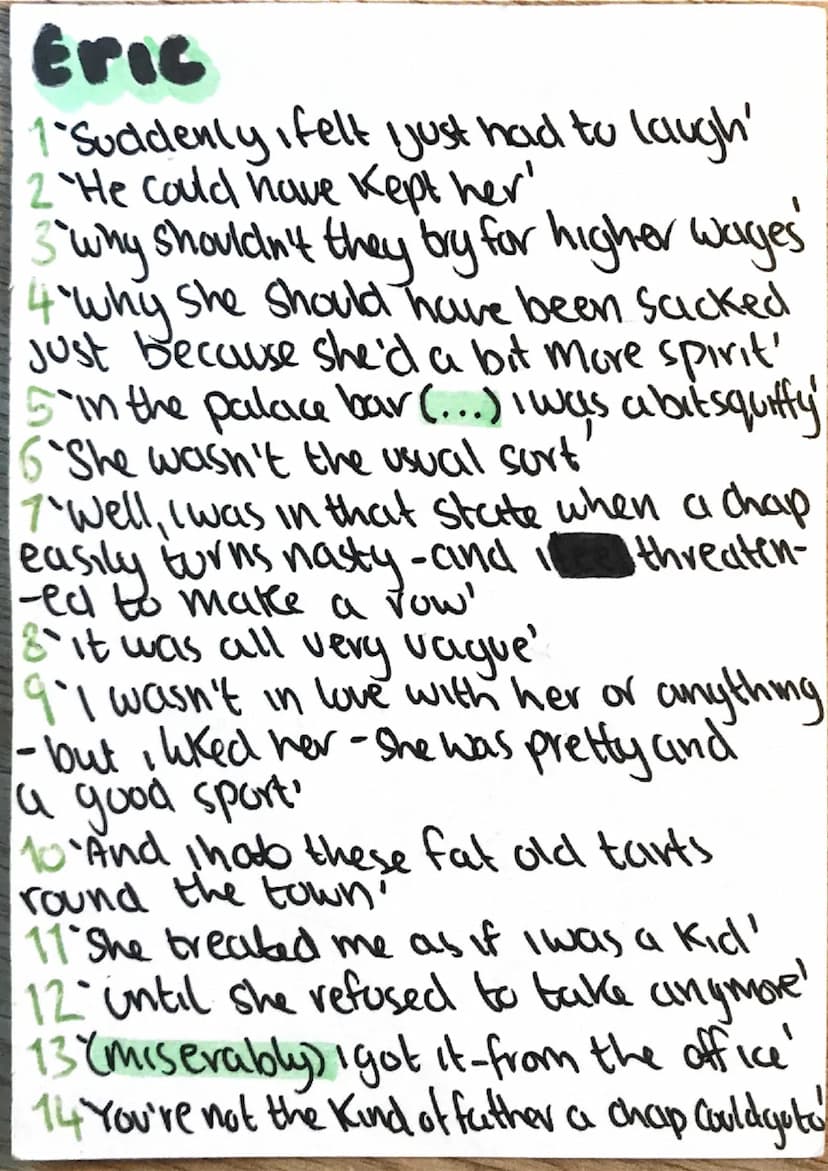 Eric
1 'Suddenly i felt i just had to laugh'
2 'He could have kept her'
3 'why shouldn't they try for higher wages'
4 'why she should have been sacked
just because she'd a bit more spirit'
5 'in the palace bar (...) i was a bit squiffy'
6 'She wasn't the usual sort'
7 'Well, i was in that state when a chap
easily turns nasty - and i threaten-
-ed to make a row'
8 'it was all very vague'
9 'I wasn't in love with her or anything
- but i liked her - she was pretty and
a good sport'
10 'And i hate these fat old tarts
round the town'
11 'She treated me as if i was a kid'
12 'until she refused to take anymore'
13 '(miserably) i got it - from the office'
14 'You're not the kind of father a chap could go to'